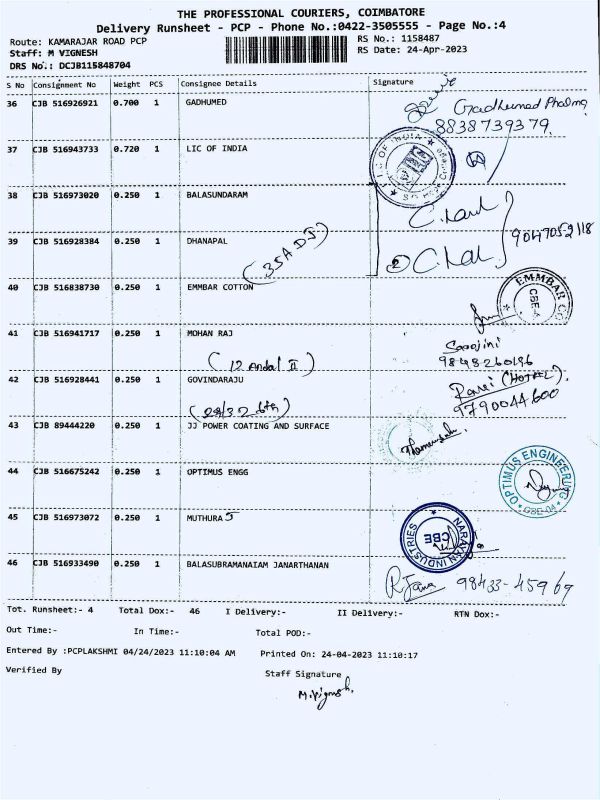 THE PROFESSIONAL COURIERS, COIMBATORE
Delivery Runsheet - PCP - Phone No.:0422-3505555 - Page No.:4
Route: KAMARAJAR ROAD PCP RS No.: 1158487
Staff: M VIGNESH RS Date: 24-Apr-2023
DRS No.: DCJB115848704
S No Consignment No Weight PCS Consignee Details Signature
36 CJB 516926921 0.700 1 GADHUMED Gadhumed Pharma
8838739379
37 CJB 516943733 0.720 1 LIC OF INDIA LIC OF INDIA
38 CJB 516973020 0.250 1 BALASUNDARAM
39 CJB 516928384 0.250 1 DHANAPAL 9047052118
(35A D.J.) 2
40 CJB 516838730 0.250 1 EMMBAR COTTON EMMBAR CBE-4
41 CJB 516941717 0.250 1 MOHAN RAJ Saraojini
(12 Andal II) 9843260196
42 CJB 516928441 0.250 1 GOVINDARAJU Ravi (HOTAL).
(29/32 6th) 9790044600
43 CJB 89444220 0.250 1 JJ POWER COATING AND SURFACE
44 CJB 516675242 0.250 1 OPTIMUS ENGG OPTIMUS ENGINEERING CBE-04
45 CJB 516973072 0.250 1 MUTHURAJ NARAYAN INDUSTRIES CBE
46 CJB 516933490 0.250 1 BALASUBRAMANAIAM JANARTHANAN R Jana 98433-45969
Tot. Runsheet:- 4 Total Dox:- 46 I Delivery:- II Delivery:- RTN Dox:-
Out Time:- In Time:- Total POD:-
Entered By :PCPLAKSHMI 04/24/2023 11:10:04 AM Printed On: 24-04-2023 11:10:17
Verified By Staff Signature
M.Vignesh.